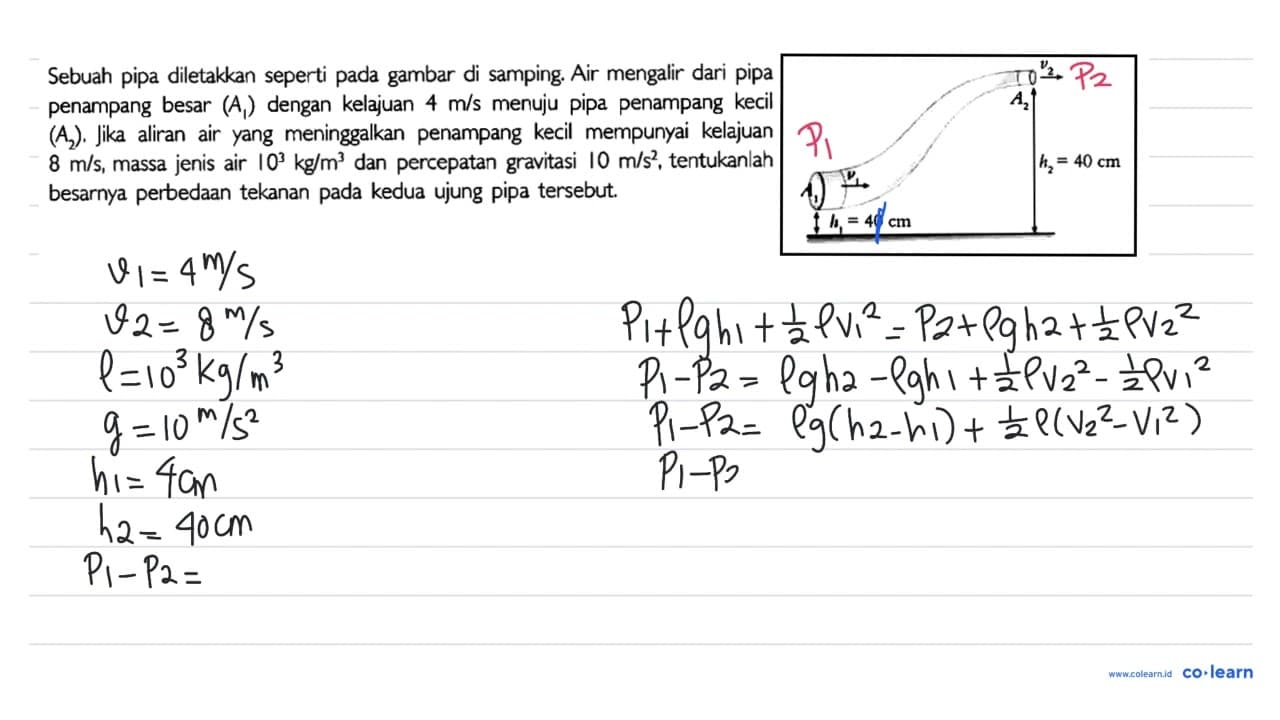 Sebuah pipa diletakkan seperti pada gambar di samping. Air mengalir dari pipa
penampang besar (A₁) dengan kelajuan 4 m/s menuju pipa penampang kecil
(A₂). Jika aliran air yang meninggalkan penampang kecil mempunyai kelajuan
8 m/s, massa jenis air 10³ kg/m³ dan percepatan gravitasi 10 m/s², tentukanlah
besarnya perbedaan tekanan pada kedua ujung pipa tersebut.
v₂
P2
A₂
P1
h₂ = 40 cm
v₁
A₁
h₁ = 40 cm
v1 = 4 m/s
v2 = 8 m/s
ρ = 10³ kg/m³
g = 10 m/s²
h1 = 4 cm
h2 = 40 cm
P1 - P2 =
P1 + ρgh1 + ½ρv1² = P2 + ρgh2 + ½ρv2²
P1 - P2 = ρgh2 - ρgh1 + ½ρv2² - ½ρv1²
P1 - P2 = ρg(h2 - h1) + ½ρ(v2² - v1²)
P1 - P2
www.colearn.id co·learn